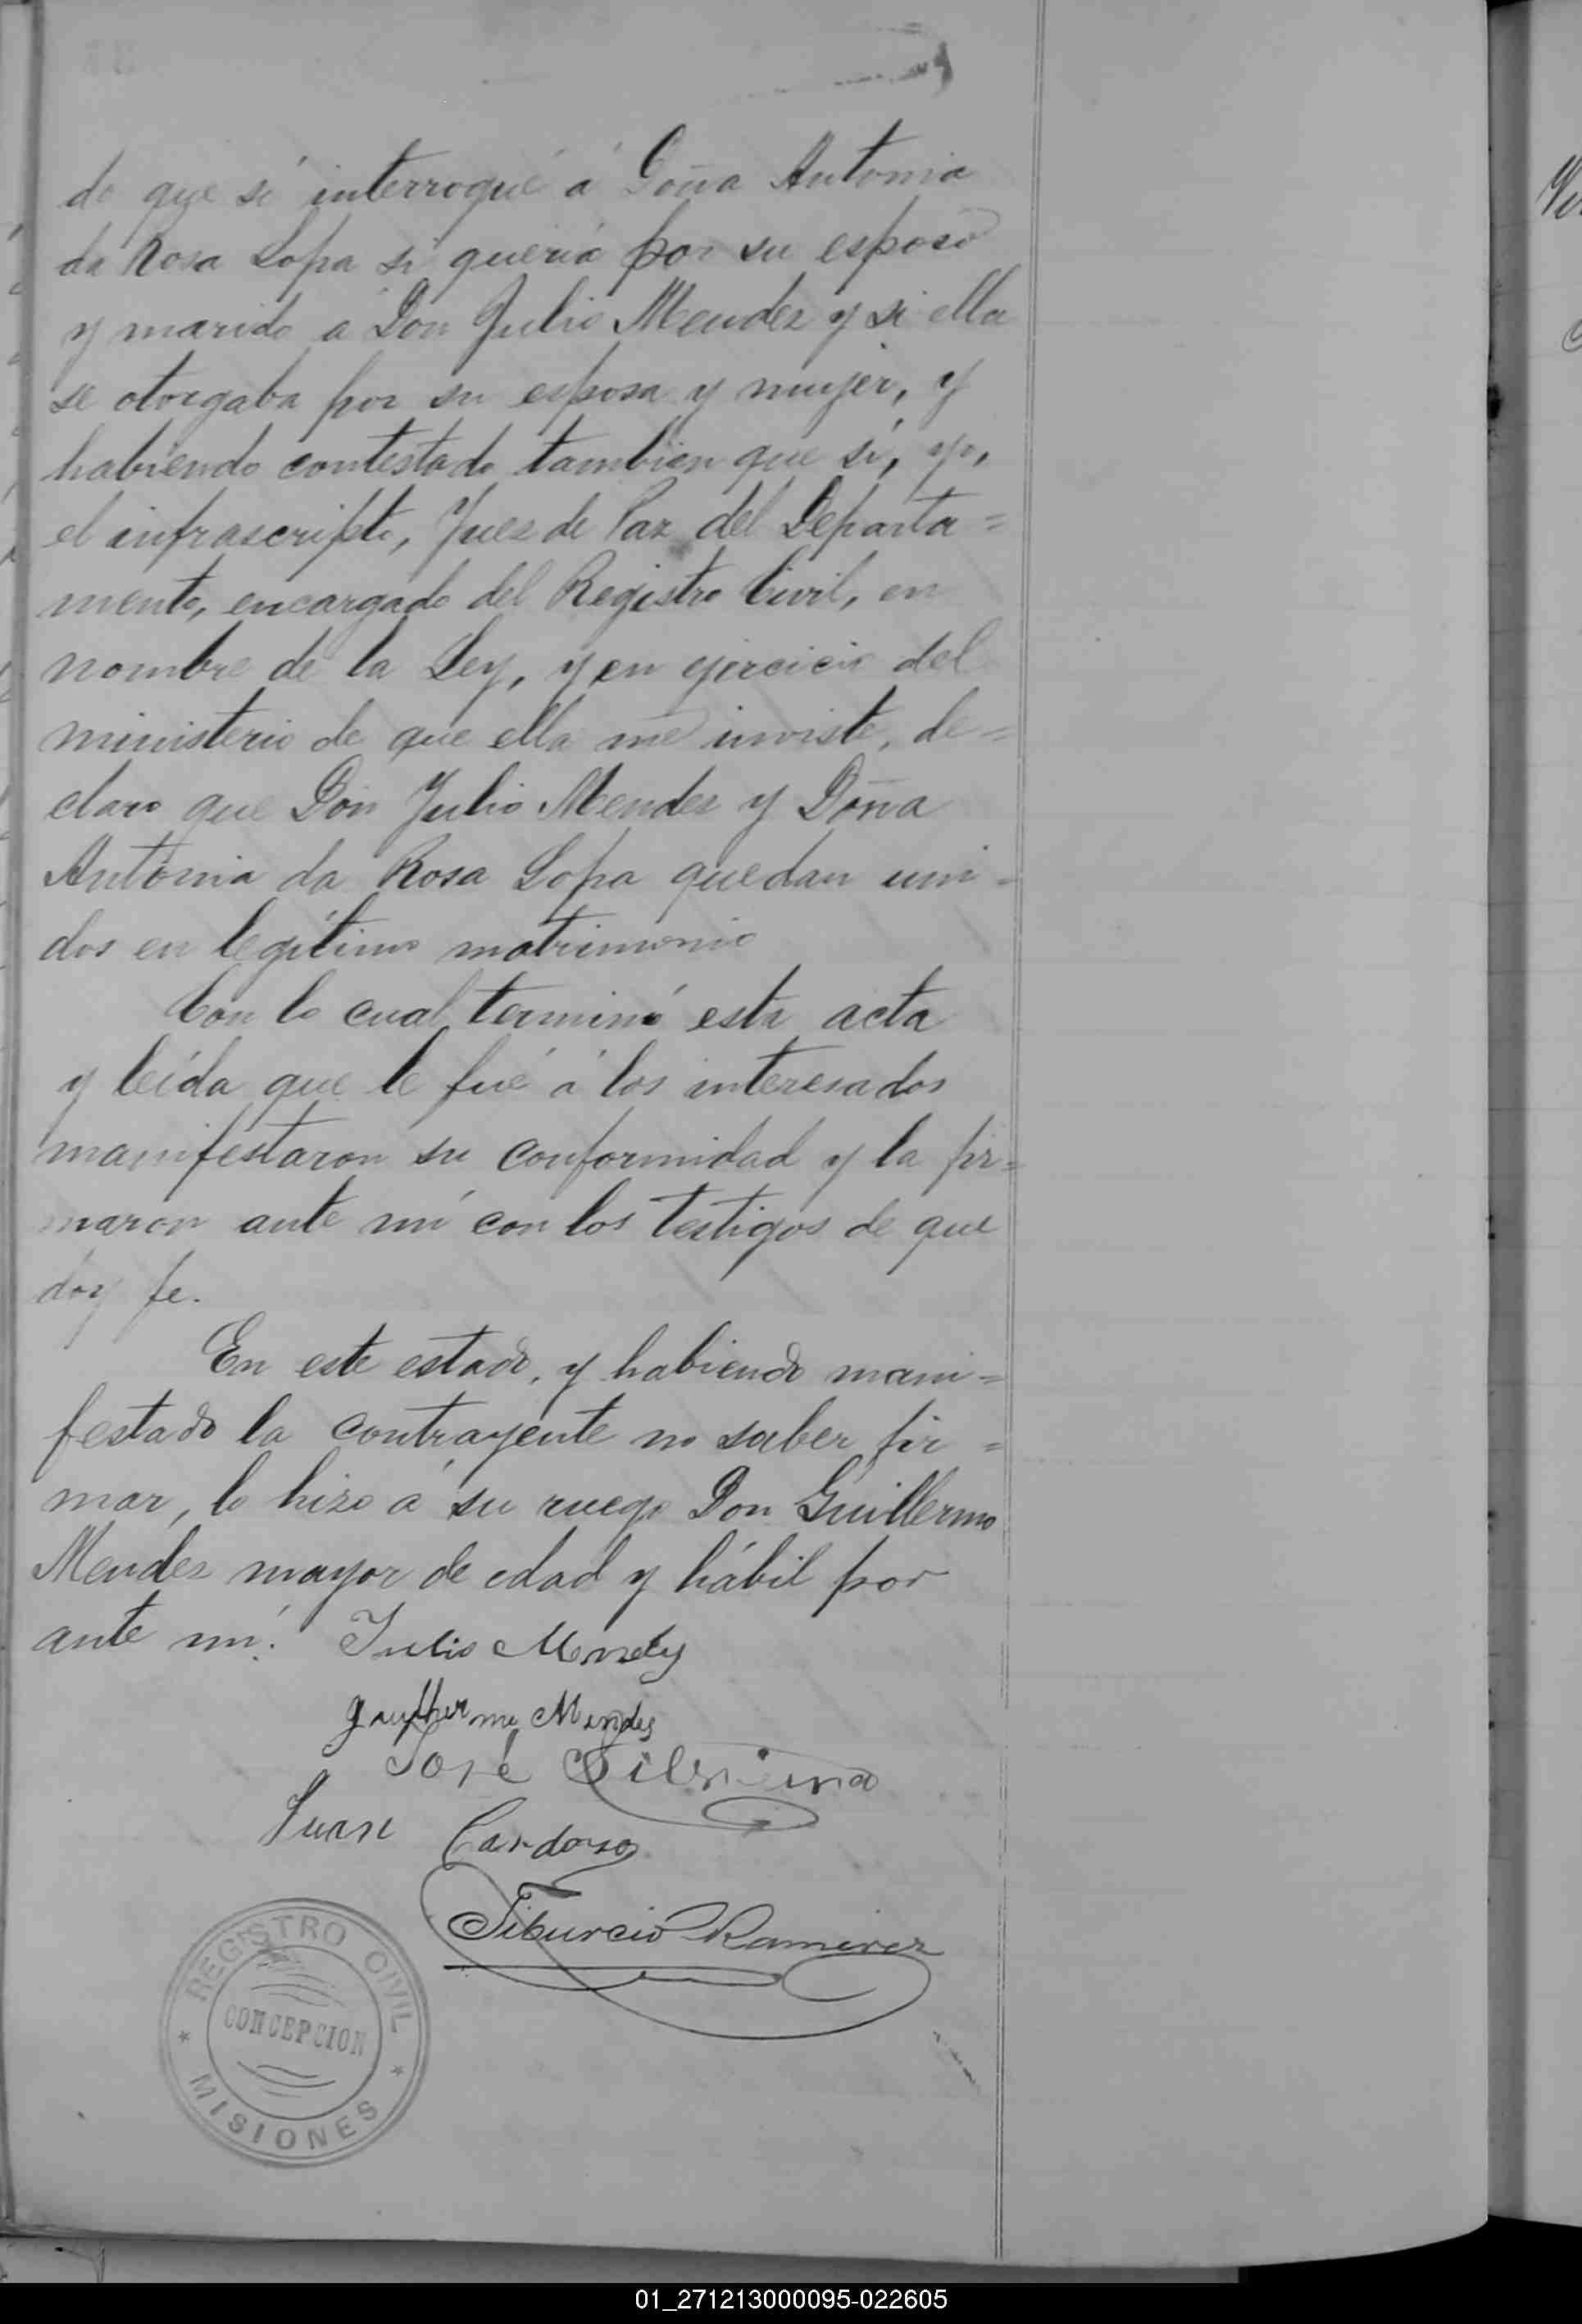 do que sí interrogué á Doña Antonia
da Rosa Lopa si quería por su esposo
y marido á Don Julio Mendez y si ella
se otorgaba por su esposa y mujer, y
habiendo contestado tambien que sí, yo,
el infrascripto, Juez de Paz del Departa=
mento, encargado del Registro Civil, en
nombre de la Ley, y en ejercicio del
ministerio de que ella me inviste, de=
claro que Don Julio Mendez y Doña
Antonia da Rosa Lopa quedan uni=
dos en legítimo matrimonio
Con lo cual terminó esta acta
y leída que le fué á los interesados
manifestaron su conformidad y la fir=
maron ante mí con los testigos de que
doy fe.
En este estado, y habiendo mani=
festado la contrayente no saber fir=
mar, lo hizo á su ruego Don Guillermo
Mendez mayor de edad y hábil por
ante mí:
Julio Mendez
Mendes
José
Juan Cardozo
Tiburcio Ramirez
REGISTRO CIVIL
CONCEPCION
* MISIONES *
01_271213000095-022605